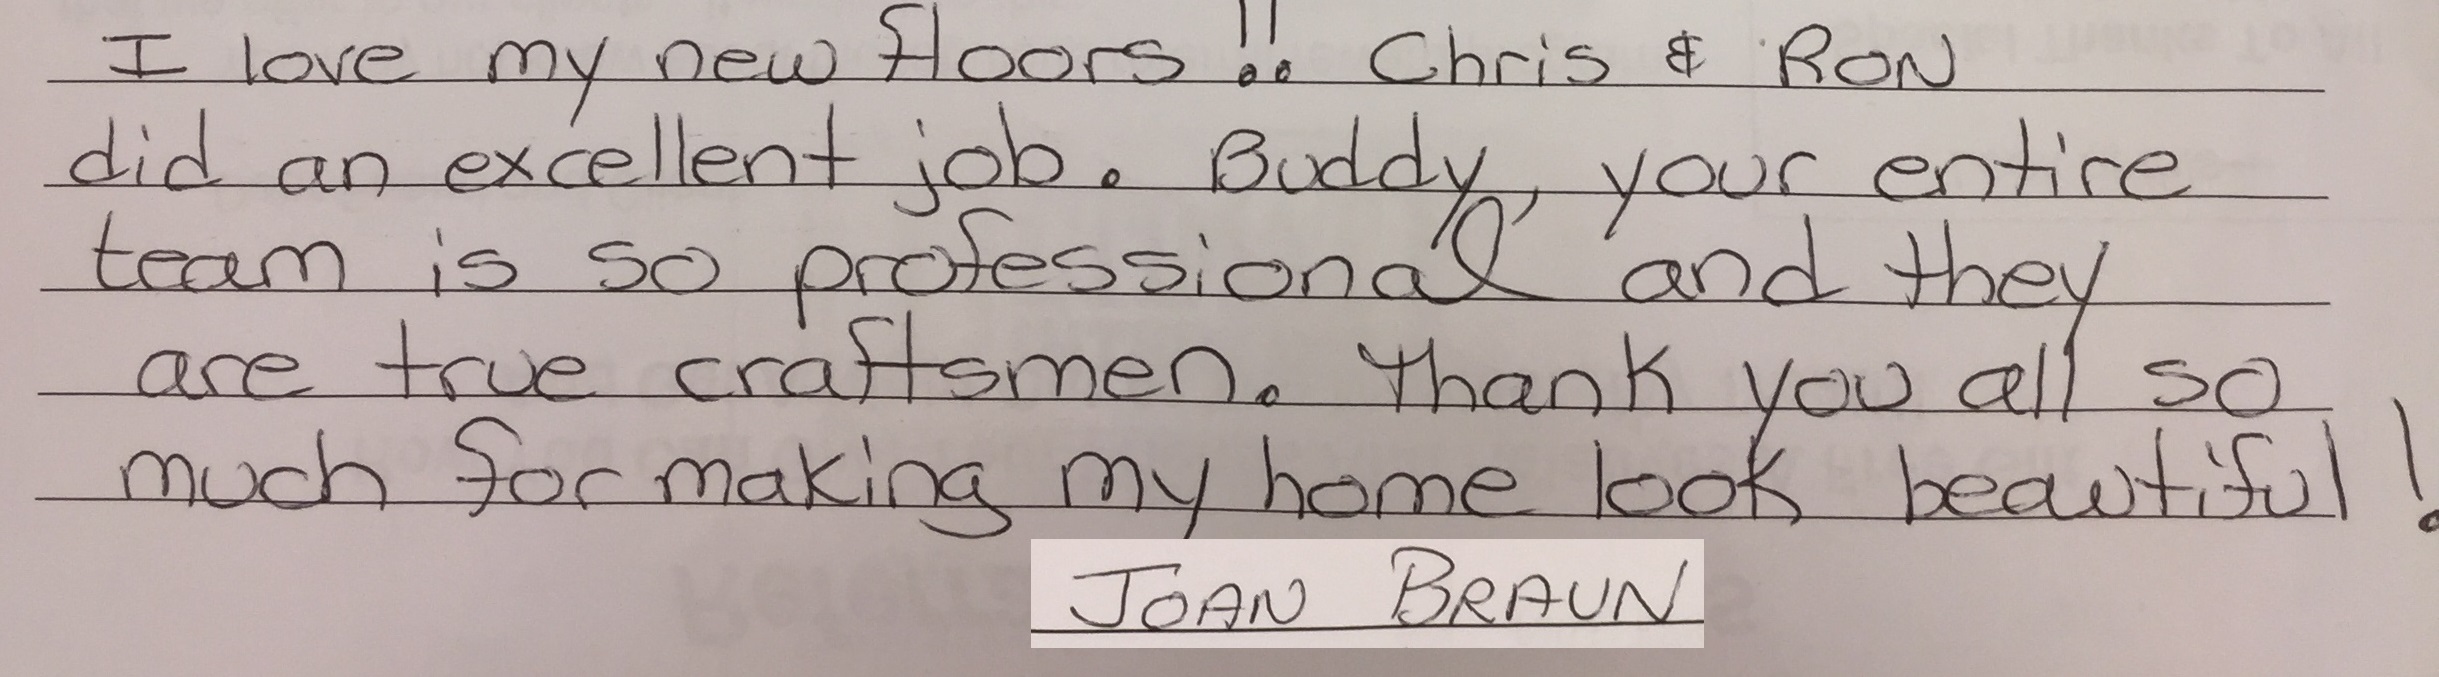 I love my new floors!! Chris & RON
did an excellent job. Buddy, your entire
team is so professional and they
are true craftsmen. Thank you all so
much for making my home look beautiful!
JOAN BRAUN